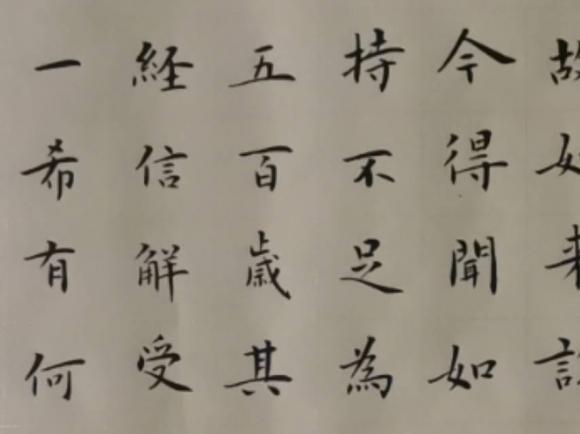 故如来說
今得聞如
持不足為
五百歲其
経信解受
一希有何